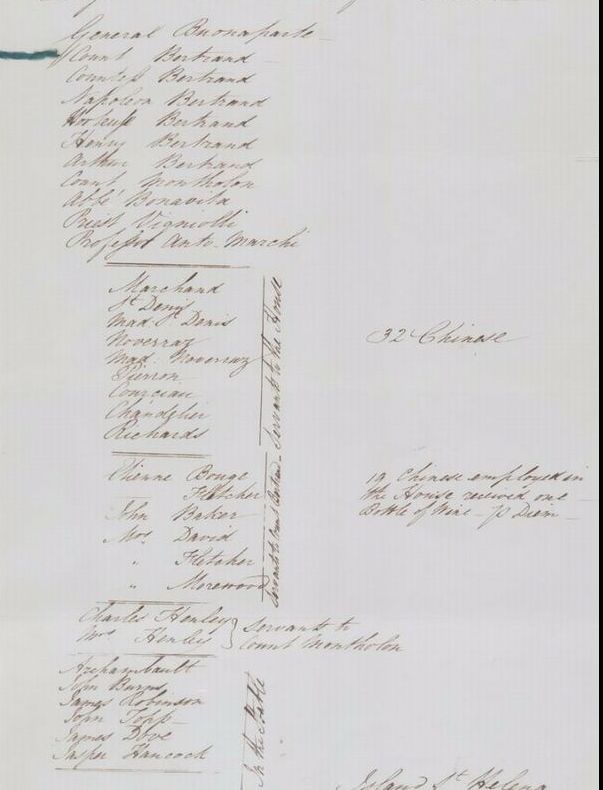 General Buonaparte
Count Bertrand
Countess Bertrand
Napoleon Bertrand
Hortense Bertrand
Henry Bertrand
Arthur Bertrand
Count Montholon
Abbé Bonavita
Priest Vignolli
Professor Anto. Marchi
Marchand
St Denis
Mad. St Denis
Noverraz
Mad. Noverraz
Pierron
Courseau
Chandelier
Richards
Servants to the House
32 Chinese
Etienne Bouge
Fletcher
John Baker
Mrs David
" Fletcher
" Morewood
Servants to Count Bertrand
19 Chinese employed in
the House received one
Bottle of Wine - p Diem -
Charles Henley
Mrs Henley
Servants to
Count Montholon
Archambault
John Burns
James Robinson
John Topp
James Dove
Jasper Hancock
In the Stable
Island St Helena